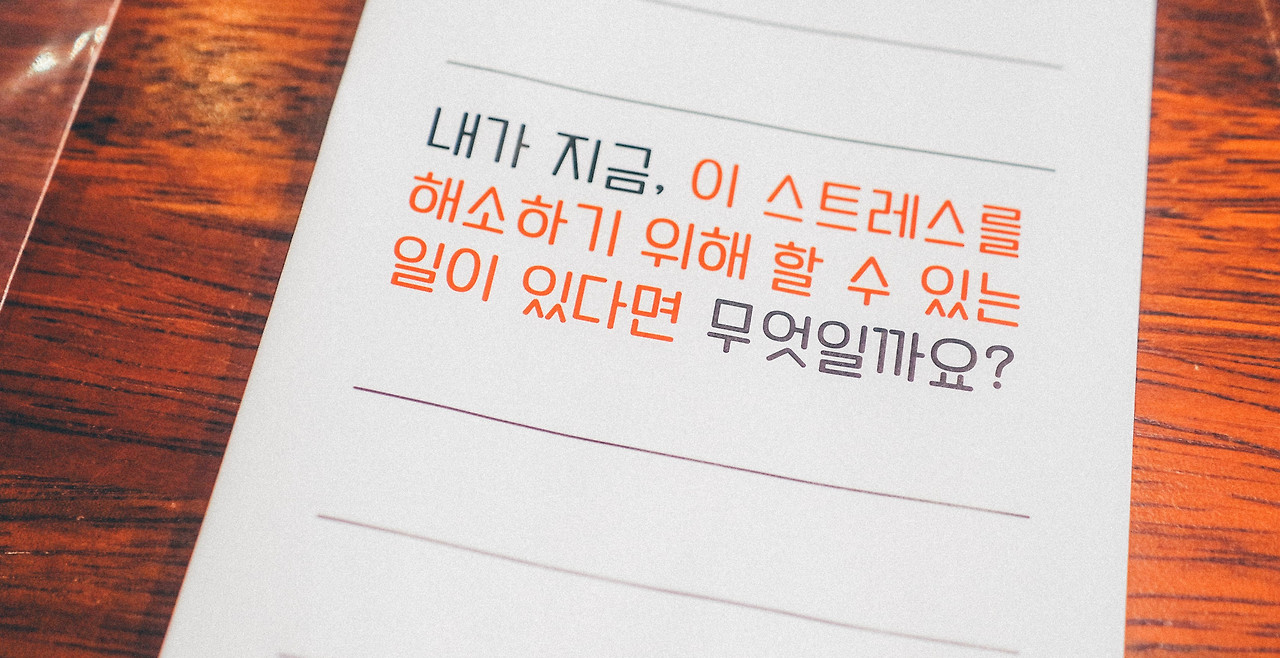 내가 지금, 이 스트레스를
해소하기 위해 할 수 있는
일이 있다면 무엇일까요?